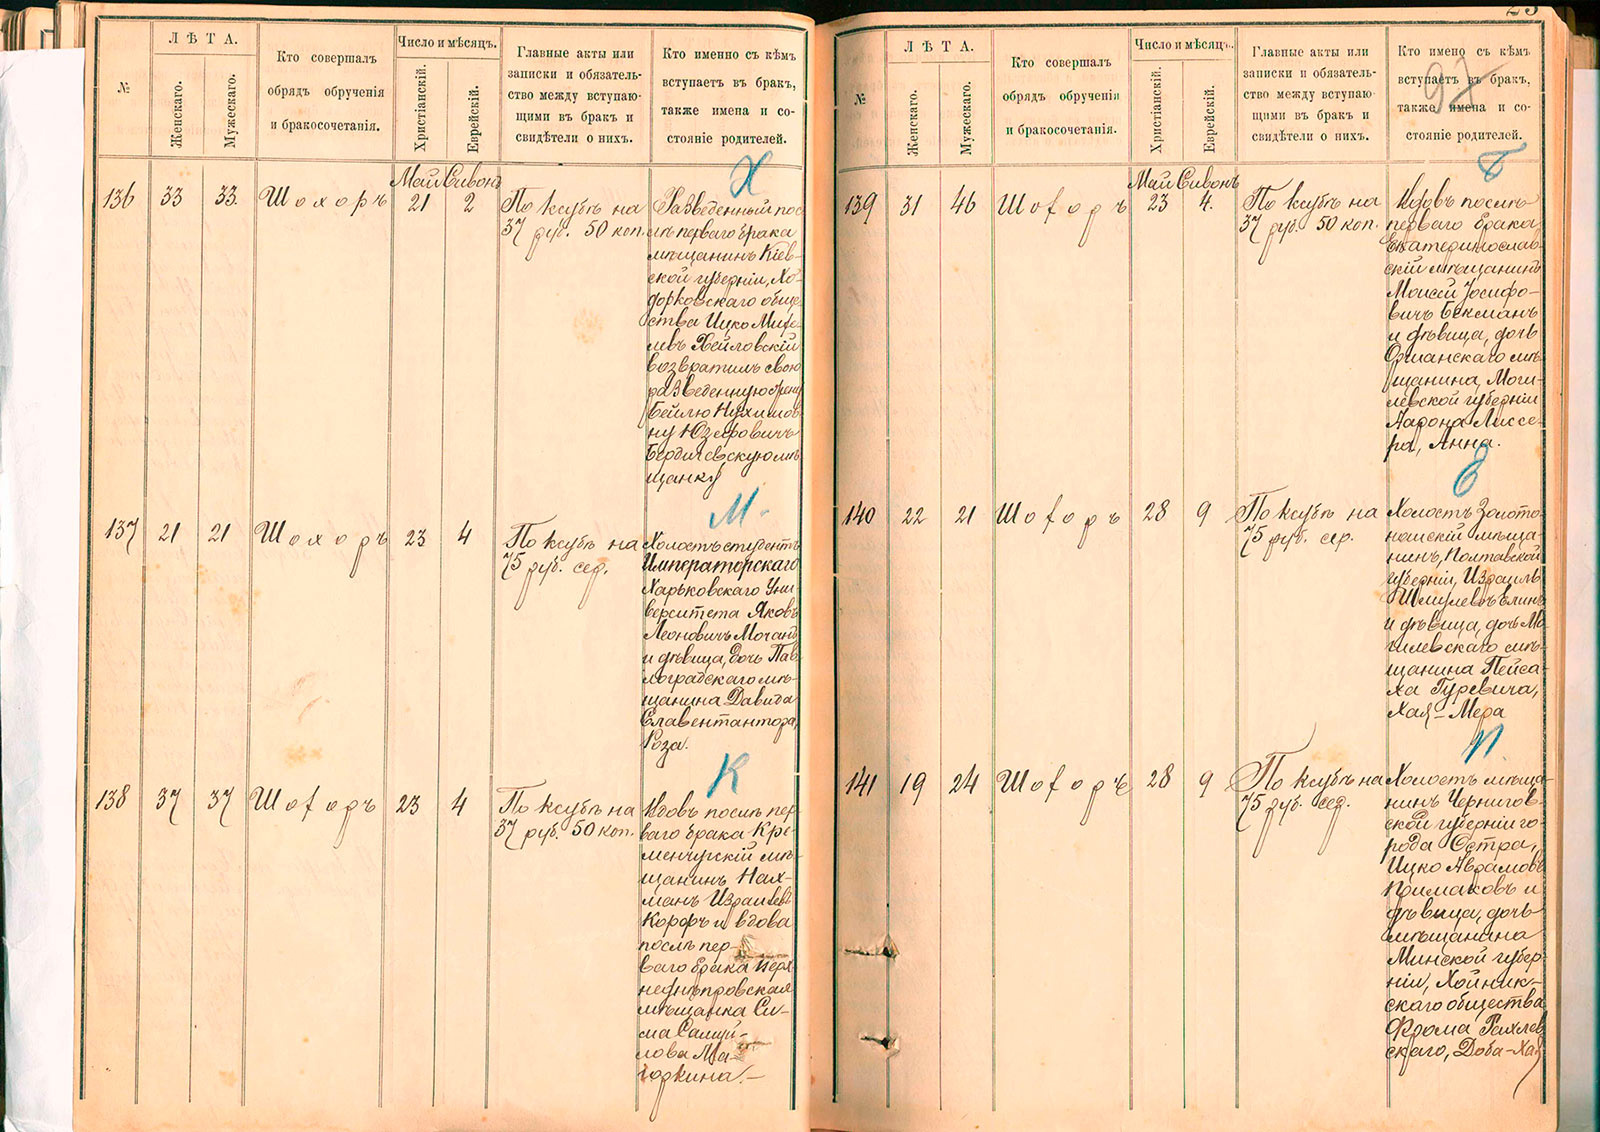 №
ЛѢТА.
Женскаго.
Мужескаго.
Кто совершалъ
обрядъ обрученія
и бракосочетанія.
Число и мѣсяцъ.
Христіанскій.
Еврейскій.
Главные акты или
записки и обязатель-
ство между вступаю-
щими въ бракъ и
свидѣтели о нихъ.
Кто именно съ кѣмъ
вступаетъ въ бракъ,
также имена и со-
стояніе родителей.
Х
136 33 33. Шохоръ
Май Сивонъ
21 2
По ксубѣ на
37 руб. 50 коп.
Разведенный пос
лѣ перваго брака
мѣщанинъ Кіев-
ской губерніи, Хо-
дорковскаго обще
ства Ицко
Хейловскій
возвратилъ свою
разведенную жену
Бейлю Нухимов
ну Юзефовичъ
Бердичевскую мѣ
щанку
М.
137 21 21 Шохоръ 23 4
По ксубѣ на
75 руб. сер.
Холостъ студентъ
Императорскаго
Харьковскаго Уни-
верситета Яковъ
Леоновичъ
и дѣвица, дочь Пав
лоградскаго мѣ-
щанина Давида
Роза.
К
138 37 37 Шоfоръ 23 4
По ксубѣ на
37 руб. 50 коп.
Вдовъ послѣ пер
ваго брака Кре-
менчугскій мѣ-
щанинъ Нах-
манъ Израилевъ
Корфъ и вдова
послѣ пер-
ваго брака Верх
неднѣпровская
мѣщанка Си-
ма Самуй-
лова Ма-
горкина.-
23
97
№
ЛѢТА.
Женскаго.
Мужескаго.
Кто совершалъ
обрядъ обрученія
и бракосочетанія.
Число и мѣсяцъ.
Христіанскій.
Еврейскій.
Главные акты или
записки и обязатель-
ство между вступаю-
щими въ бракъ и
свидѣтели о нихъ.
Кто имено съ кѣмъ
вступаетъ въ бракъ,
также имена и со-
стояніе родителей.
Б
139 31 46 Шоfоръ
Май Сивонъ
23 4.
По ксубѣ на
37 руб. 50 коп.
Вдовъ послѣ
перваго брака
Екатеринослав-
скій мѣщанинъ
Моисей Іосифо-
вичъ Бекманъ
и дѣвица, дочь
Оршанскаго мѣ
щанина, Моги-
левской губерніи
Аарона Лиссе-
ра, Анна.
Е
140 22 21 Шоfоръ 28 9
По ксубѣ на
75 руб. сер.
Холостъ Золото-
ношскій мѣща-
нинъ, Полтавской
губерніи, Израиль
Шмулевъ Елинъ
и дѣвица, дочь Мо
гилевскаго мѣ-
щанина Пейса-
ха Гуревича,
Хая-Мера
П
141 19 24 Шоfоръ 28 9
По ксубѣ на
75 руб. сер.
Холостъ мѣща-
нинъ Чернигов-
ской губерніи го-
рода Остра,
Ицко Аврамовъ
Примаковъ и
дѣвица, дочь
мѣщанина
Минской губер-
ніи, Хойник-
скаго общества
Фрома Рахлев
скаго, Доба-Хая